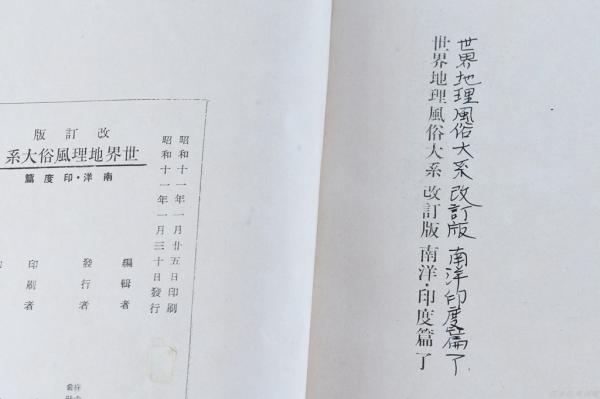 世界地理風俗大系 改訂版 南洋印度篇了
世界地理風俗大系 改訂版 南洋・印度篇了
昭和十一年一月廿五日印刷
昭和十一年一月三十日發行
改訂版
世界地理風俗大系
南洋・印度篇
編輯者
發行者
印刷者